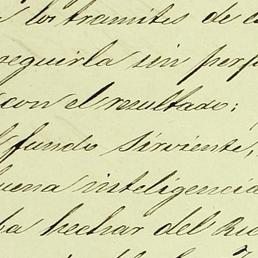 los tramites de
seguirla sin perj
con el resultado;
fundo sirviente,
buena inteligencia
hechar del Rie